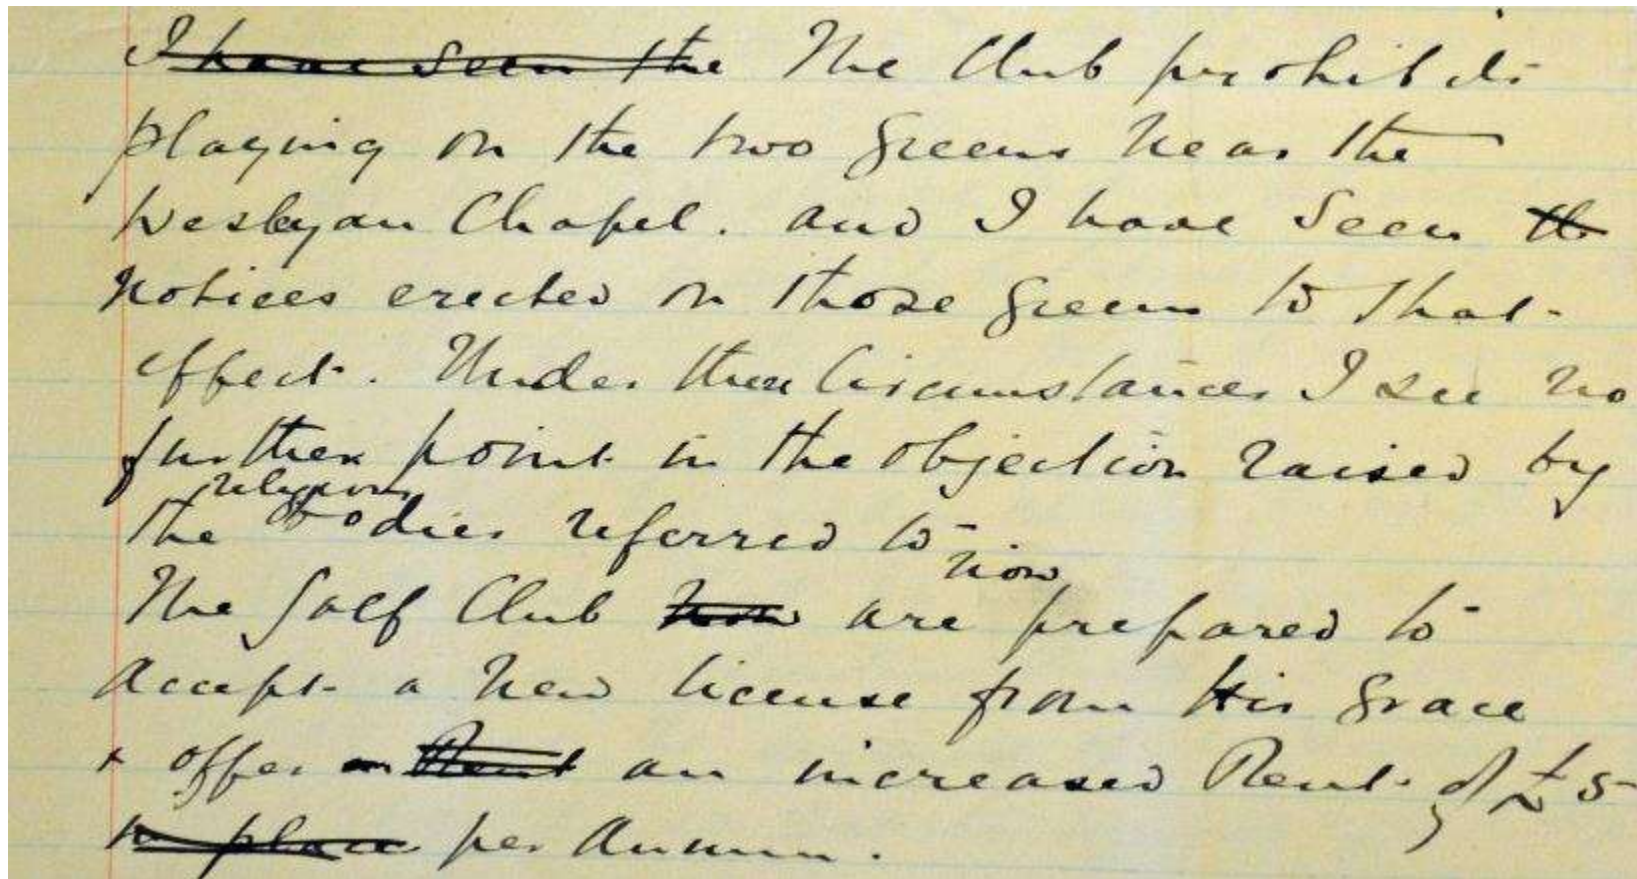 I have seen the The Club prohibits
playing on the two greens near the
Wesleyan Chapel. and I have seen the
notices erected on those greens to that
effect. Under these Circumstances I see no
further point in the objection raised by
religious
the bodies referred to
now
The Golf Club now are prepared to
accept a new license from His Grace
+ offer an Rent an increased Rent of £5
in place per Annum.